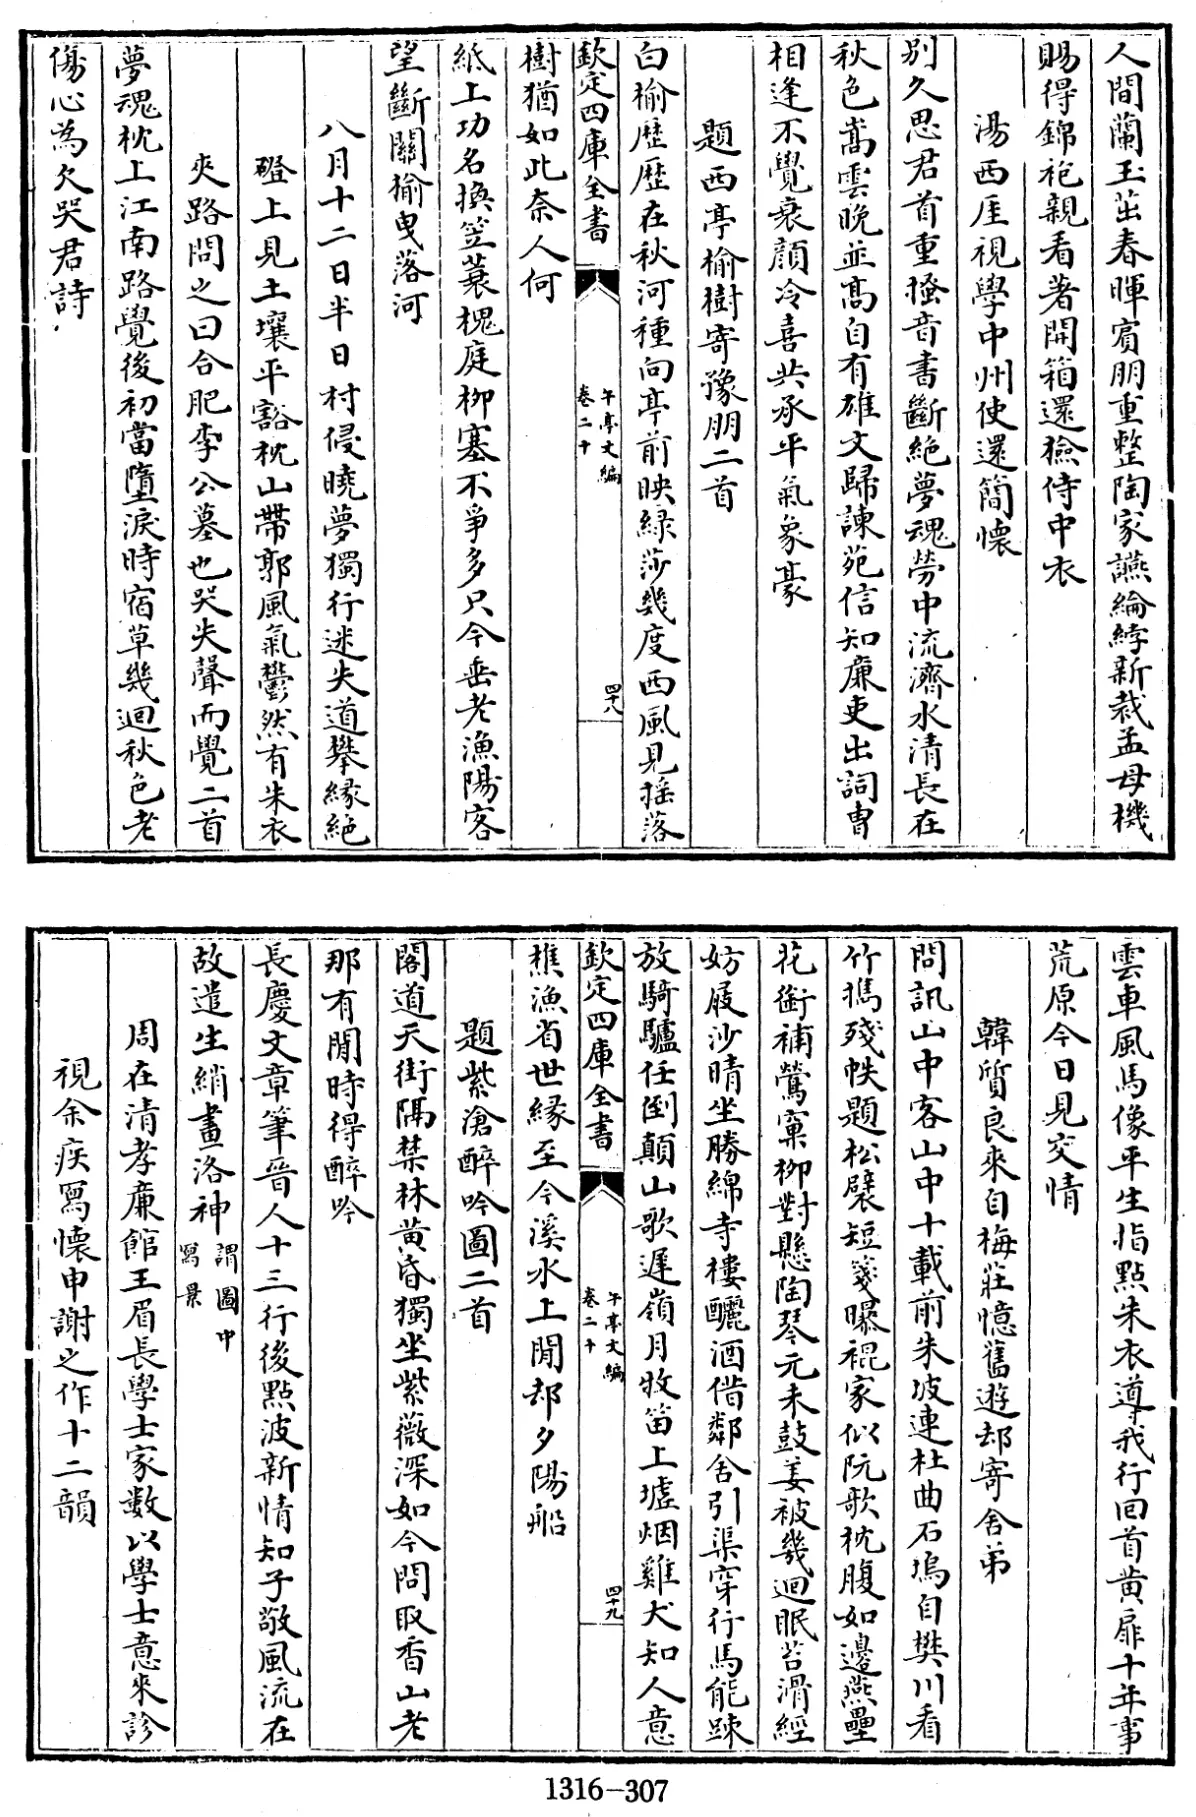 人間蘭玉茁春暉賓朋重整陶家讌綸綍新裁孟母機
賜得錦袍親看著開箱還檢侍中衣
湯西厓視學中州使還簡懷
別久思君首重搔音書斷絶夢魂勞中流濟水清長在
秋色嵩雲晚並高自有雄文歸諫苑信知廉吏出詞曹
相逢不覺衰顔冷喜共承平氣象豪
題西亭榆樹寄豫朋二首
白榆歴歴在秋河種向亭前映緑莎幾度西風見揺落
欽定四庫全書
午亭文編
卷二十
四十八
樹猶如此奈人何
紙上功名換笠蓑槐庭柳塞不爭多只今垂老漁陽客
望斷關榆曳落河
八月十二日半日村侵曉夢獨行迷失道攀緣絶
磴上見土壤平豁枕山帶郭風氣鬱然有朱衣
夾路問之曰合肥李公墓也哭失聲而覺二首
夢魂枕上江南路覺後初當墮淚時宿草幾迴秋色老
傷心為欠哭君詩
雲車風馬像平生指點朱衣導我行回首黄扉十年事
荒原今日見交情
韓質良來自梅莊憶舊遊却寄舍弟
問訊山中客山中十載前朱坡連杜曲石塢自樊川看
竹攜殘帙題松襞短箋曝裩家似阮歌枕腹如邊燕壘
花銜補鶯窠柳對懸陶琴元未鼓姜被幾迴眠苔滑經
妨屐沙晴坐勝綿寺樓釃酒借鄰舍引渠穿行馬能踈
放騎驢任倒顛山歌遲嶺月牧笛上墟烟雞犬知人意
欽定四庫全書
午亭文編
卷二十
四十九
樵漁省世緣至今溪水上閒却夕陽船
題紫滄醉吟圖二首
閣道天街隔禁林黄昏獨坐紫薇深如今問取香山老
那有閒時得醉吟
長慶文章筆晉人十三行後點波新情知子敬風流在
故遣生綃畫洛神謂圖中寫景
周在清孝亷館王眉長學士家數以學士意來診
視余疾寫懷申謝之作十二韻
1316-307